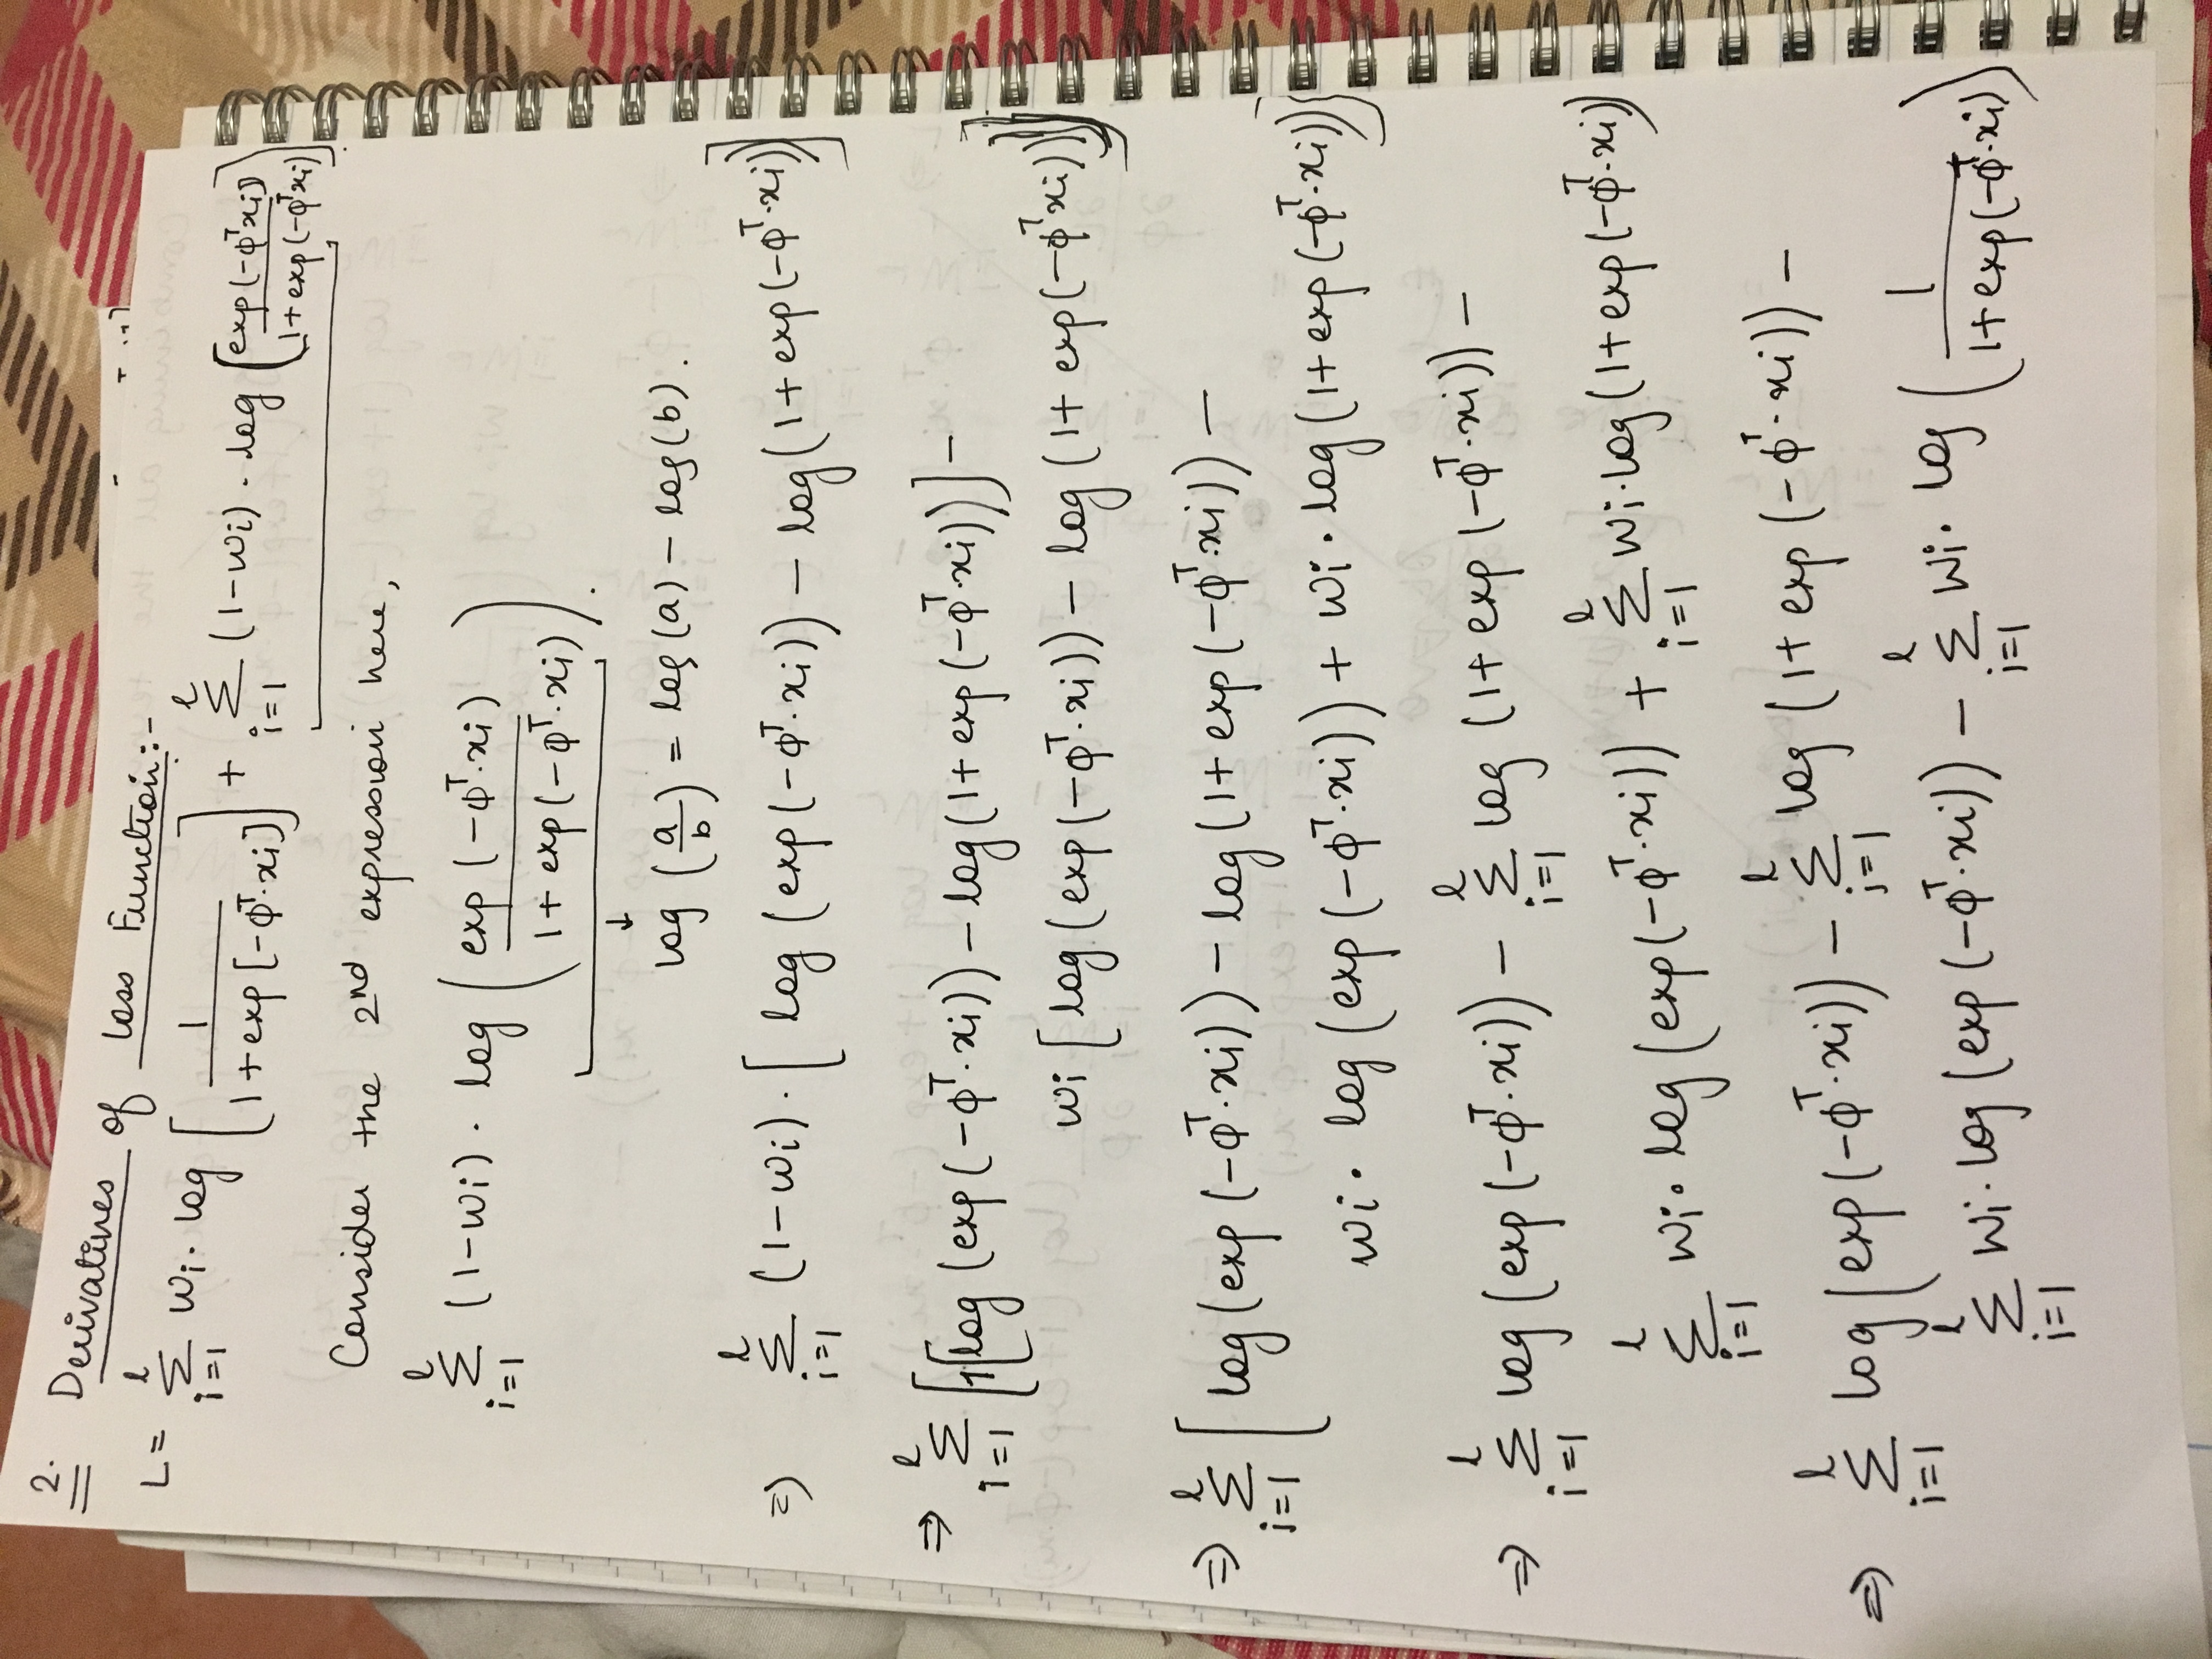 2. Derivatives of Loss Function:-
L = \sum_{i=1}^{l} wi . log [ 1 / (1+exp[-φ^T.xi]) ] + \sum_{i=1}^{l} (1-wi) . log [ exp(-φ^T xi) / (1+exp(-φ^T xi)) ]
Consider the 2nd expression here,
\sum_{i=1}^{l} (1-wi) . log ( exp(-φ^T.xi) / (1+ exp(-φ^T.xi)) ) .
↓
log (a/b) = log(a) - log(b).
=> \sum_{i=1}^{l} (1-wi) . [ log (exp(-φ^T.xi)) - log(1+exp(-φ^T.xi)) ]
=> \sum_{i=1}^{l} [1[log (exp(-φ^T.xi)) - log(1+ exp(-φ^T.xi))] -
wi [log(exp(-φ^T.xi)) - log (1+ exp(-φ^T xi))]]
=> \sum_{i=1}^{l} [ log(exp(-φ^T.xi)) - log(1+ exp(-φ^T.xi)) -
wi . log(exp(-φ^T.xi)) + wi . log(1+exp(-φ^T.xi)) ]
=> \sum_{i=1}^{l} log(exp(-φ^T.xi)) - \sum_{i=1}^{l} log (1+ exp(-φ^T.xi)) -
\sum_{i=1}^{l} wi . log(exp(-φ^T.xi)) + \sum_{i=1}^{l} wi.log(1+exp(-φ^T.xi))
=> \sum_{i=1}^{l} log(exp(-φ^T.xi)) - \sum_{i=1}^{l} log (1+ exp(-φ^T.xi)) -
\sum_{i=1}^{l} wi.log(exp(-φ^T.xi)) - \sum_{i=1}^{l} wi. log ( 1 / (1+exp(-φ^T.xi)) )